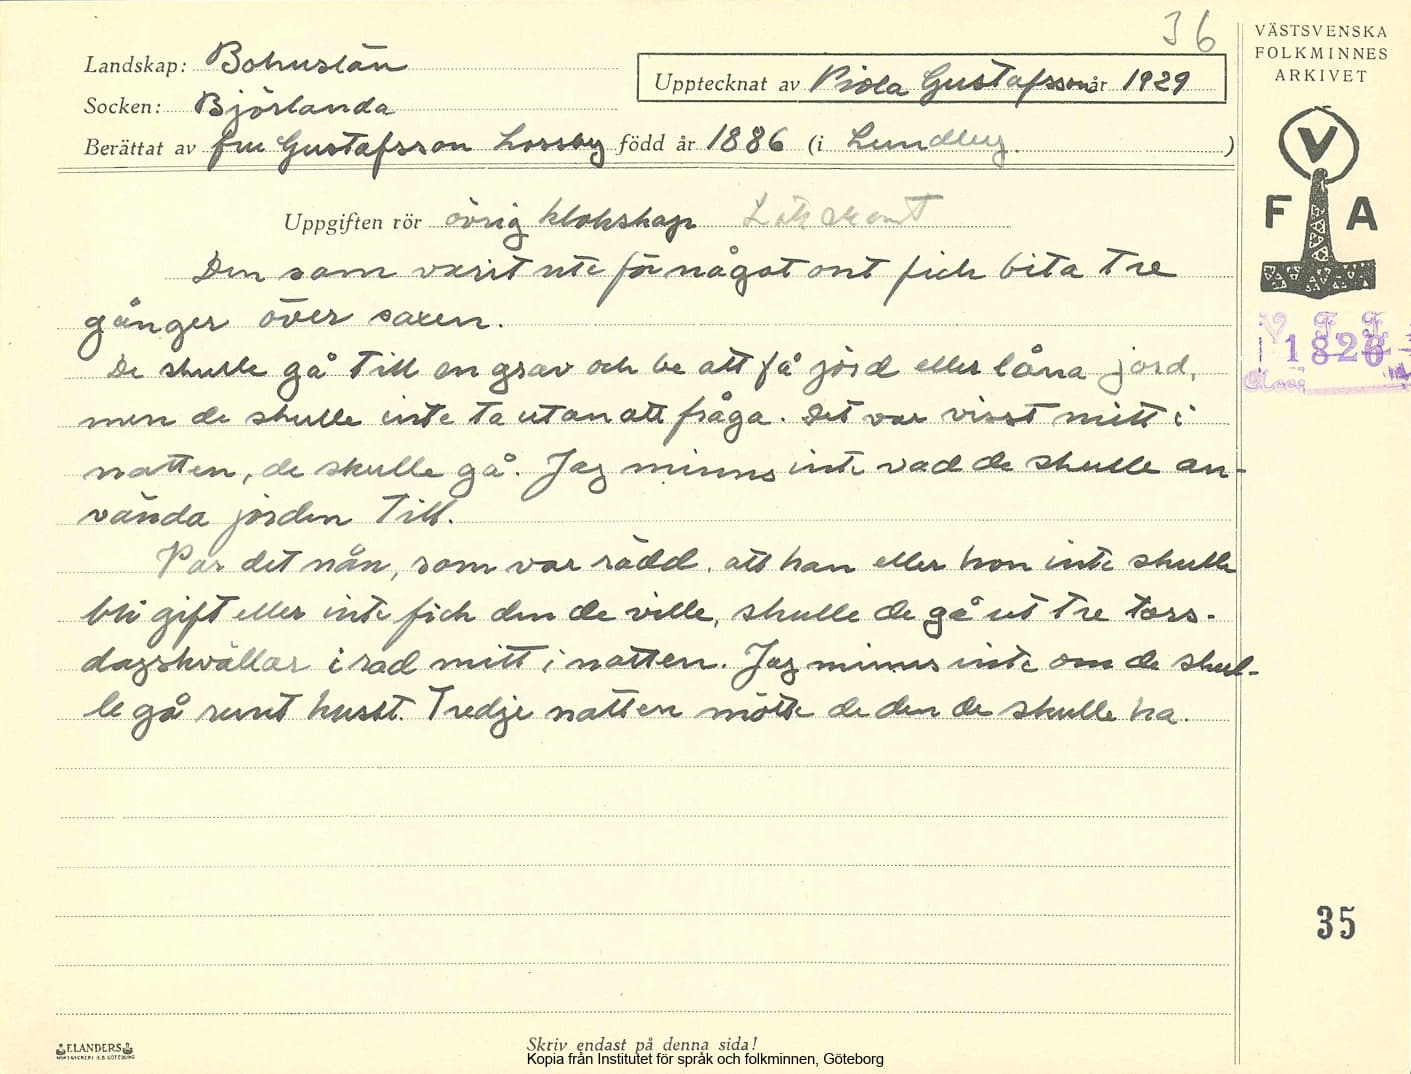 36
Landskap: Bohuslän
Upptecknat av Viola Gustafsson år 1929
Socken: Björlanda
Berättat av fru Gustafsson Lossby född år 1886 (i Lundby.)
VÄSTSVENSKA
FOLKMINNES
ARKIVET
V
F A
Uppgiften rör övrig klokskap
1828
Den som varit ute för något ont fick bita tre
gånger över saxen.
De skulle gå till en grav och be att få jord eller låna jord,
men de skulle inte ta utan att fråga. Det var visst mitt i
natten, de skulle gå. Jag minns inte vad de skulle an-
vända jorden till.
Var det nån, som var rädd, att han eller hon inte skulle
bli gift eller inte fick den de ville, skulle de gå ut tre tors-
dagskvällar i rad mitt i natten. Jag minns inte om de skul-
le gå runt huset. Tredje natten mötte de den de skulle ha.
35
ELANDERS
Skriv endast på denna sida!
Kopia från Institutet för språk och folkminnen, Göteborg